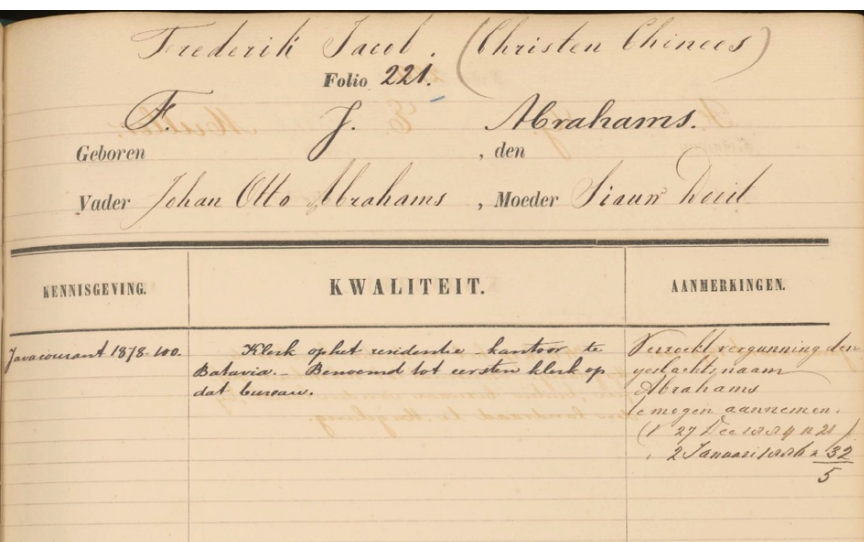 Frederik Jacob. (Christen Chinees)
Folio 221.
F. J. Abrahams.
Geboren , den
Vader Johan Otto Abrahams , Moeder Siauw
KENNISGEVING. KWALITEIT. AANMERKINGEN.
Javacourant 1878-100.
Klerk op het residentie-kantoor te
Batavia. - Benoemd tot eersten klerk op
dat bureau.
Verzoekt vergunning den
geslachtsnaam
Abrahams
te mogen aannemen.
27 Dec 1884 n 21
2 Januari 1886 n 32
5